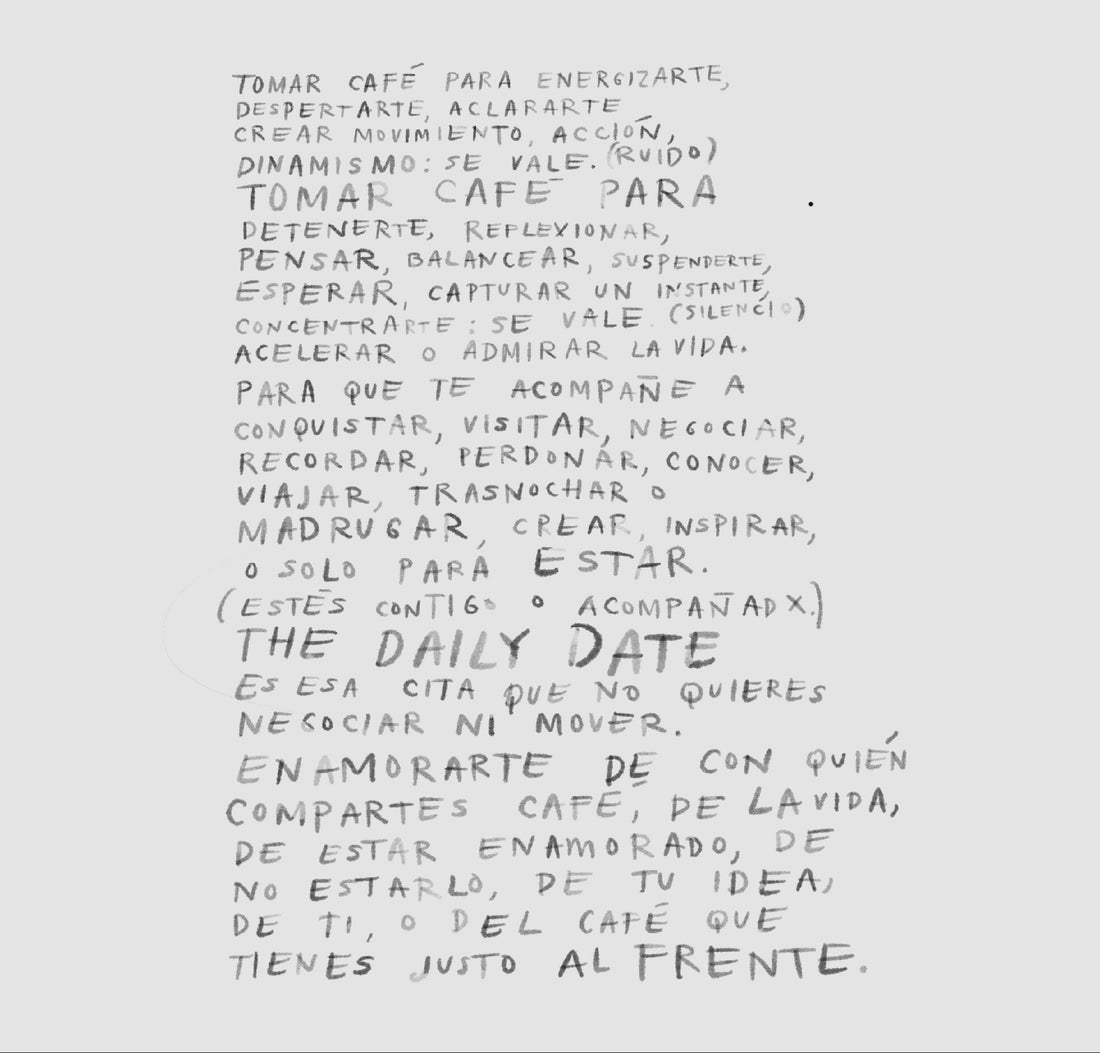 TOMAR CAFÉ PARA ENERGIZARTE,
DESPERTARTE, ACLARARTE
CREAR MOVIMIENTO, ACCIÓN,
DINAMISMO: SE VALE. (RUIDO)
TOMAR CAFÉ PARA
DETENERTE, REFLEXIONAR,
PENSAR, BALANCEAR, SUSPENDERTE,
ESPERAR, CAPTURAR UN INSTANTE,
CONCENTRARTE: SE VALE. (SILENCIO)
ACELERAR O ADMIRAR LA VIDA.
PARA QUE TE ACOMPAÑE A
CONQUISTAR, VISITAR, NEGOCIAR,
RECORDAR, PERDONAR, CONOCER,
VIAJAR, TRASNOCHAR O
MADRUGAR, CREAR, INSPIRAR,
O SOLO PARA ESTAR.
(ESTÉS CONTIGO O ACOMPAÑADX.)
THE DAILY DATE
ES ESA CITA QUE NO QUIERES
NEGOCIAR NI MOVER.
ENAMORARTE DE CON QUIÉN
COMPARTES CAFÉ, DE LA VIDA,
DE ESTAR ENAMORADO, DE
NO ESTARLO, DE TU IDEA,
DE TI, O DEL CAFÉ QUE
TIENES JUSTO AL FRENTE.